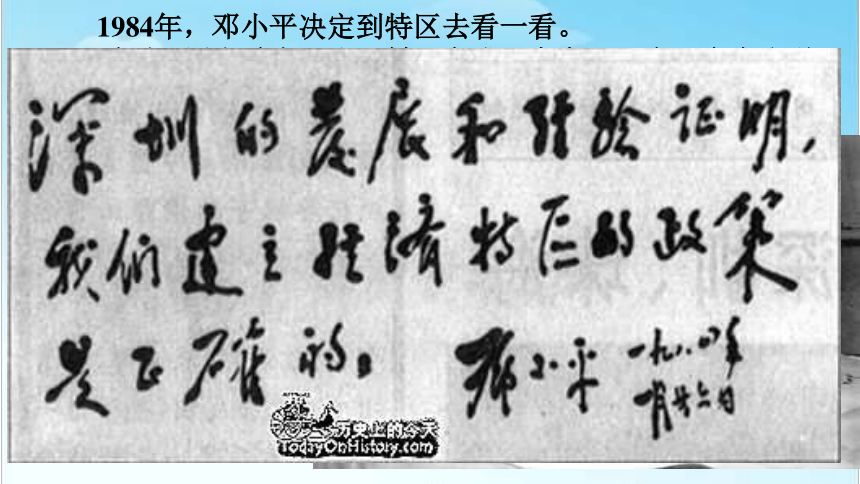 1984年，邓小平决定到特区去看一看。
深圳的发展和经验证明，
我们建立经济特区的政策
是正确的。 邓小平 一九八四年
一月廿六日
历史上的今天
TodayOnHistory.com